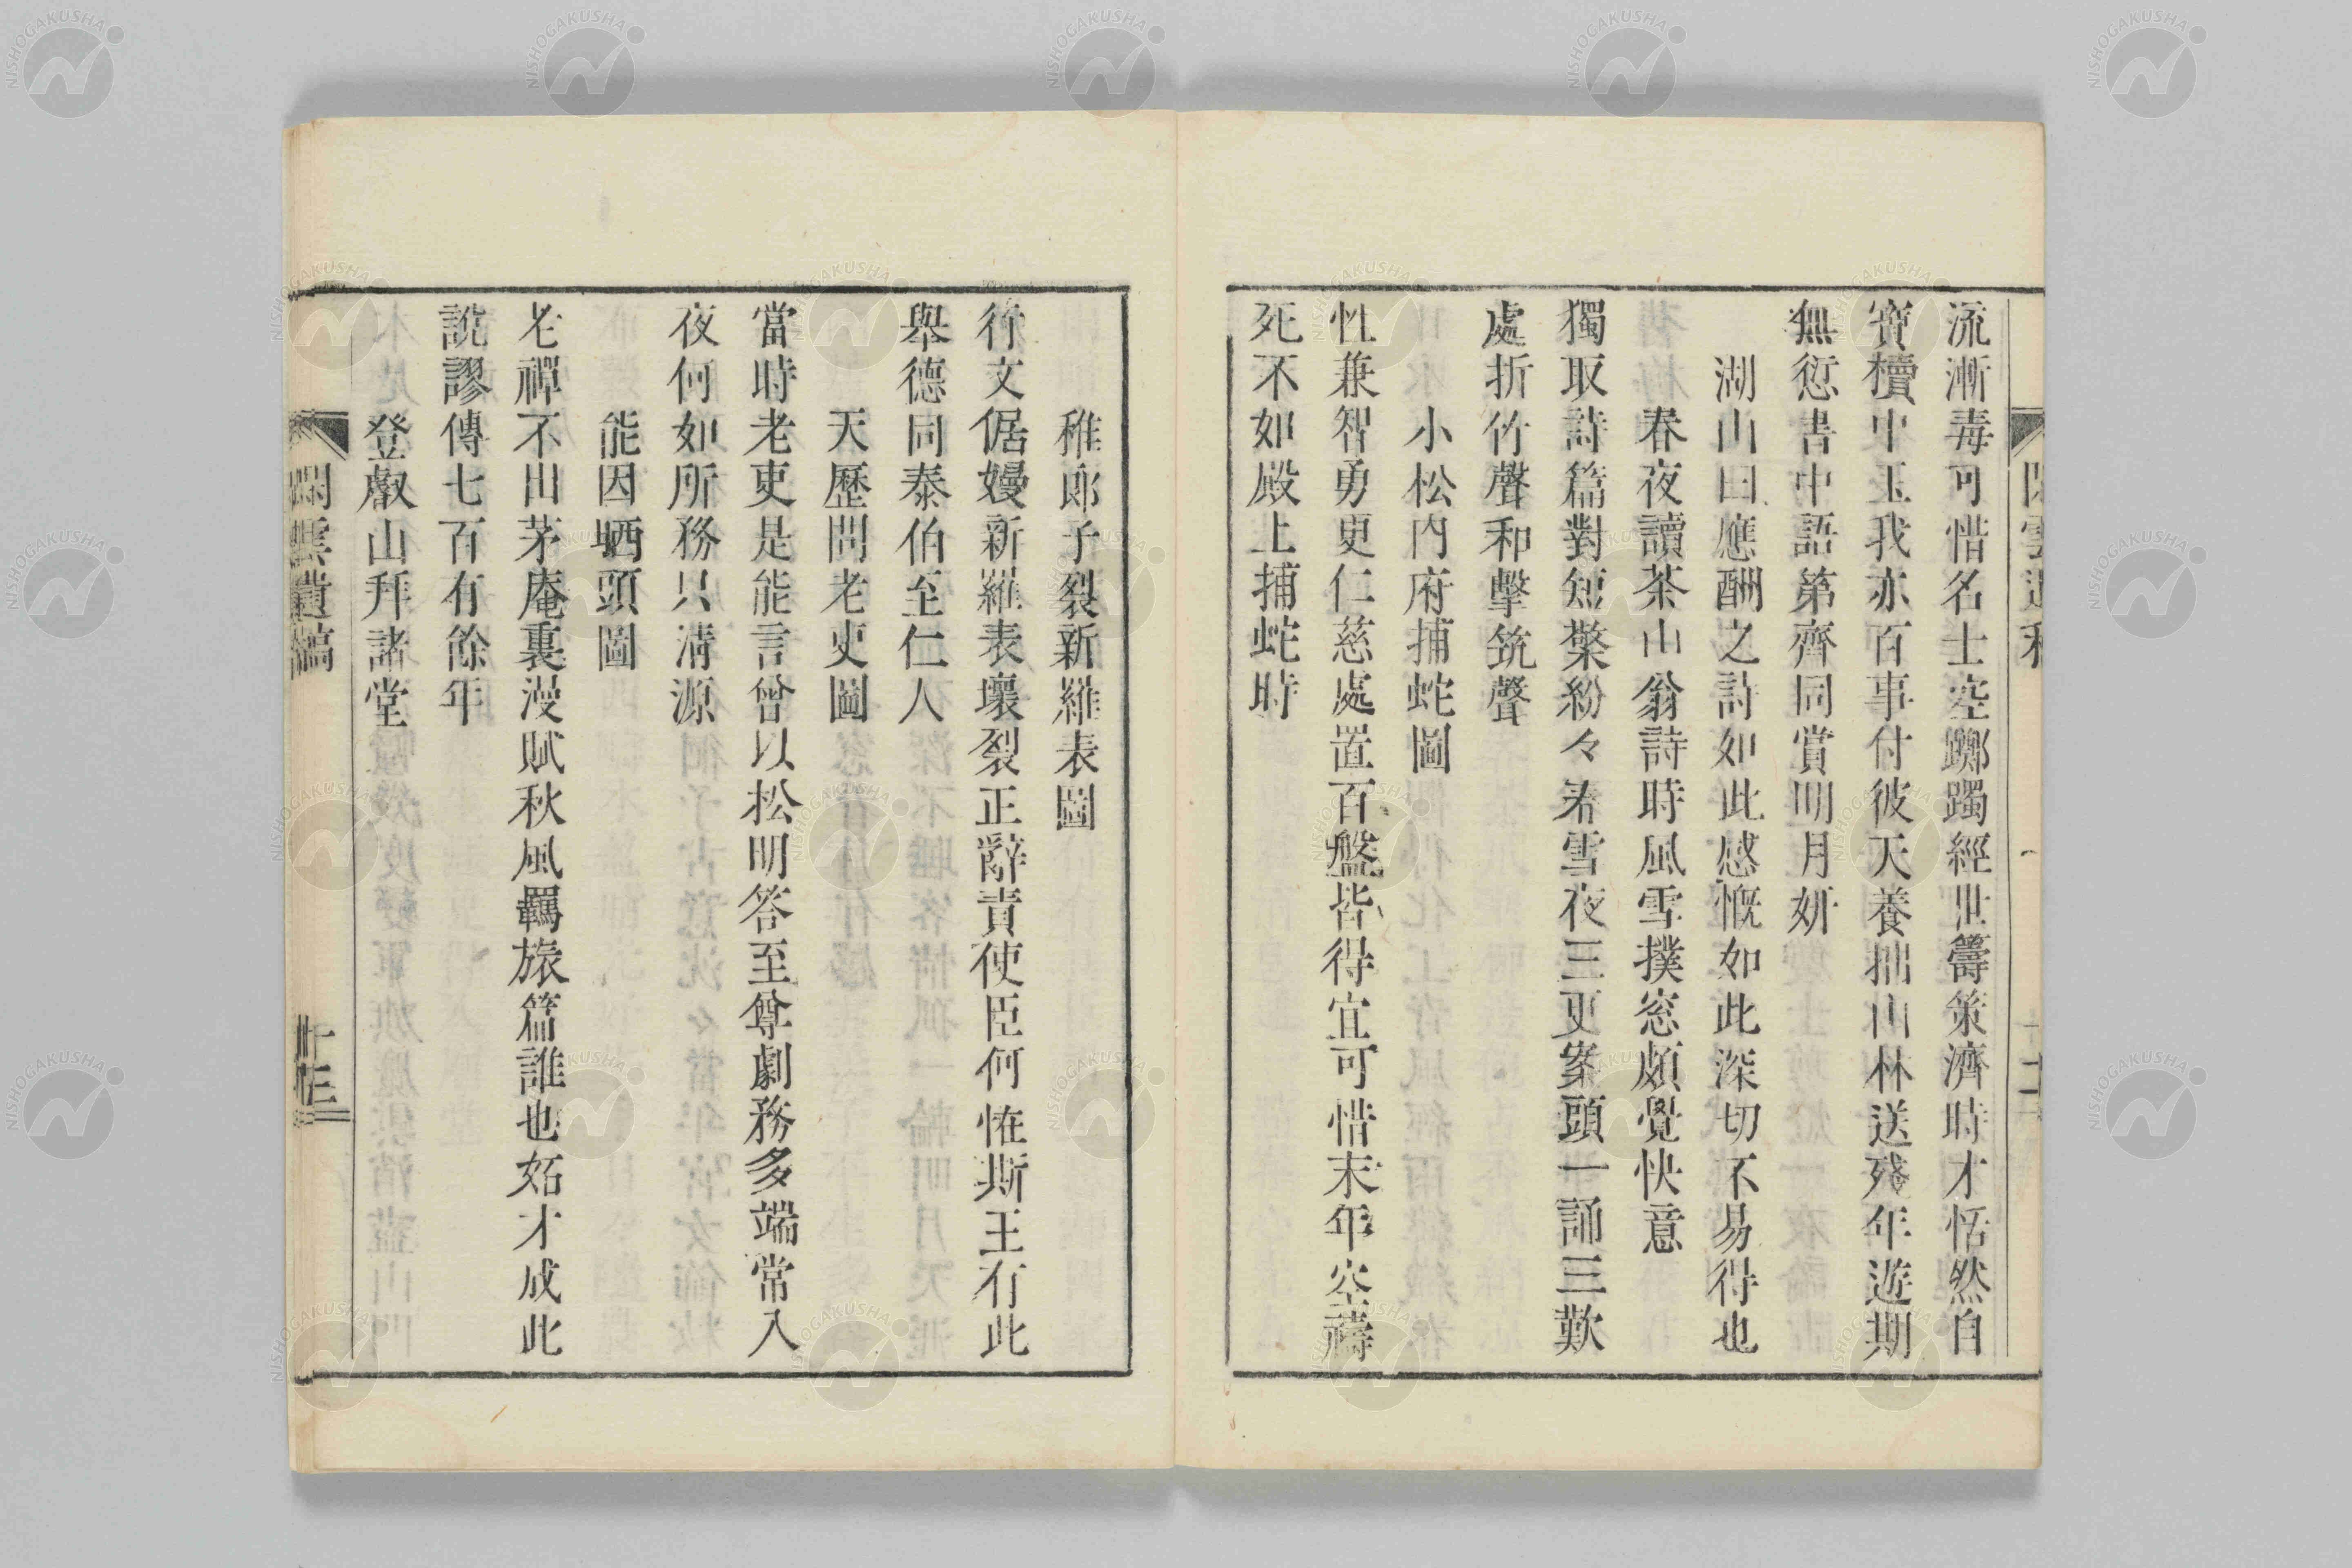 流漸毒可惜名士空躑躅經世籌策濟時才恬然自
寶櫝中玉我亦百事付彼天養拙山林送殘年遊期
無愆書中語第齊同賞明月妍
湖山曰應酬之詩如此感慨如此深切不易得也
春夜讀茶山翁詩時風雪撲窓頗覺快意
獨取詩篇對短檠紛々寿雪夜三更案頭一誦三歎
處折竹聲和擊筑聲
小松內府捕蛇圖
性兼智勇更仁慈處置百盤皆得宜可惜末年空禱
死不如殿上捕蛇時
稚郎子裂新羅表圖
行文倨嫚新羅表壞裂正辭責使臣何恠斯王有此
舉德同泰伯至仁人
天歷問老吏圖
當時老吏是能言曾以松明答至尊劇務多端常入
夜何如所務只清源
能因晒頭圖
老禪不出茅庵裏漫賦秋風羈旅篇誰也妬才成此
說謬傳七百有餘年
登叡山拜諸堂
閑雲遺稿
十三
NISHOGAKUSHA